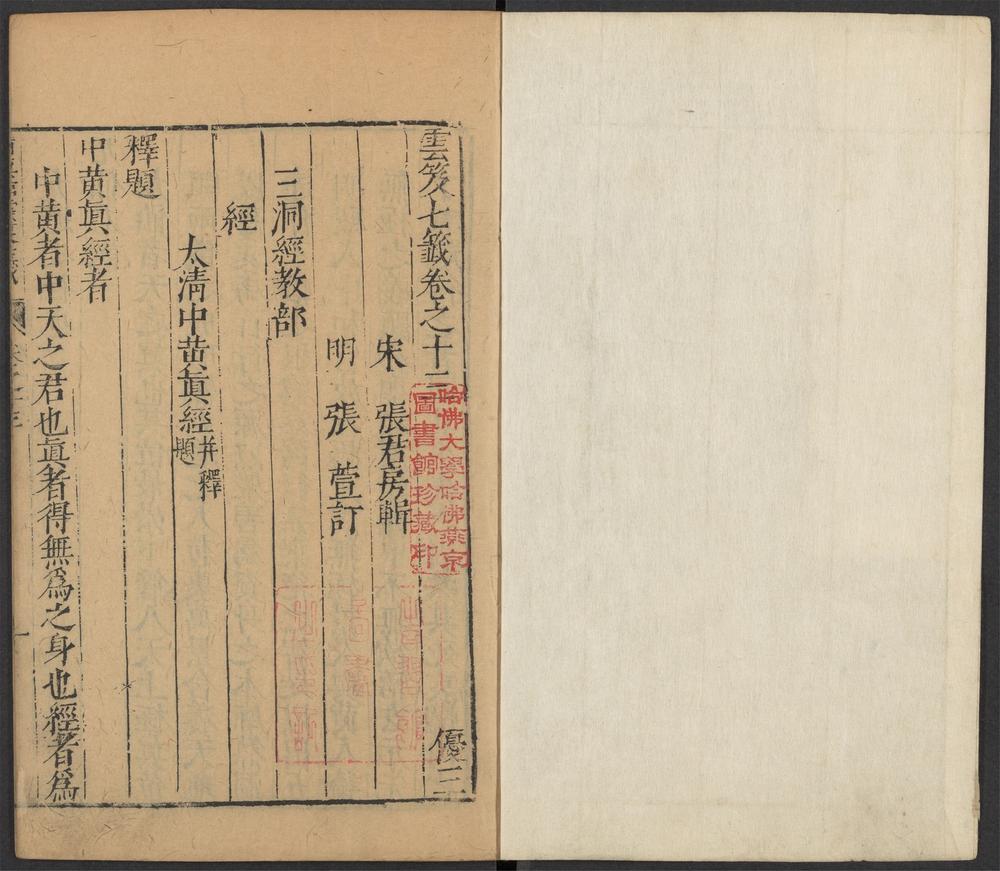 雲笈七籤卷之十三
優三
宋 張君房輯
明 張萱訂
三洞經教部
經
太清中黃眞經并釋題
釋題
中黃眞經者
中黃者中天之君也眞者得無爲之身也經者爲
哈佛大學哈佛燕京
圖書館珍藏印